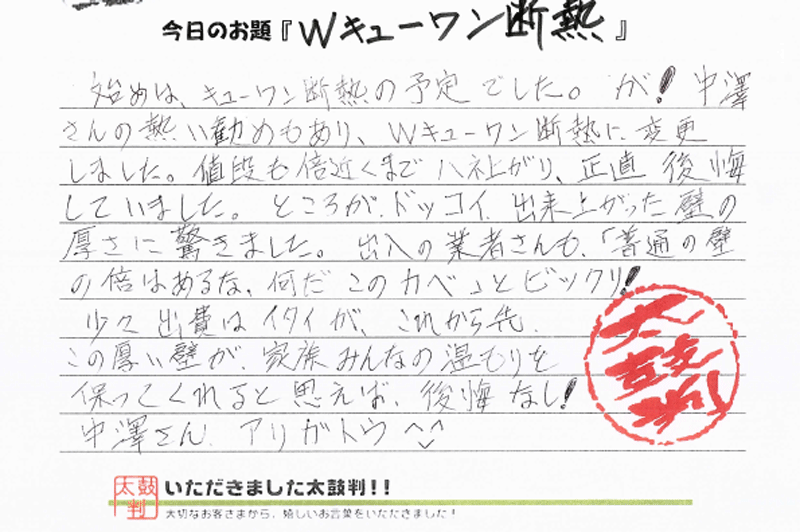 今日のお題『Wキューワン断熱』
始めは、キューワン断熱の予定でした。が!中澤
さんの熱い勧めもあり、Wキューワン断熱に変更
しました。値段も倍近くまでハネ上がり、正直後悔
していました。ところが、ドッコイ、出来上がった壁の
厚さに驚きました。出入の業者さんも、「普通の壁
の倍はあるな、何だこのカベ」とビックリ!
少々出費はイタイが、これから先、
この厚い壁が、家族みんなの温もりを
保ってくれると思えば、後悔なし!
中澤さん、アリガトウ^^
太鼓判
太鼓判 いただきました太鼓判!!
大切なお客さまから、嬉しいお言葉をいただきました!